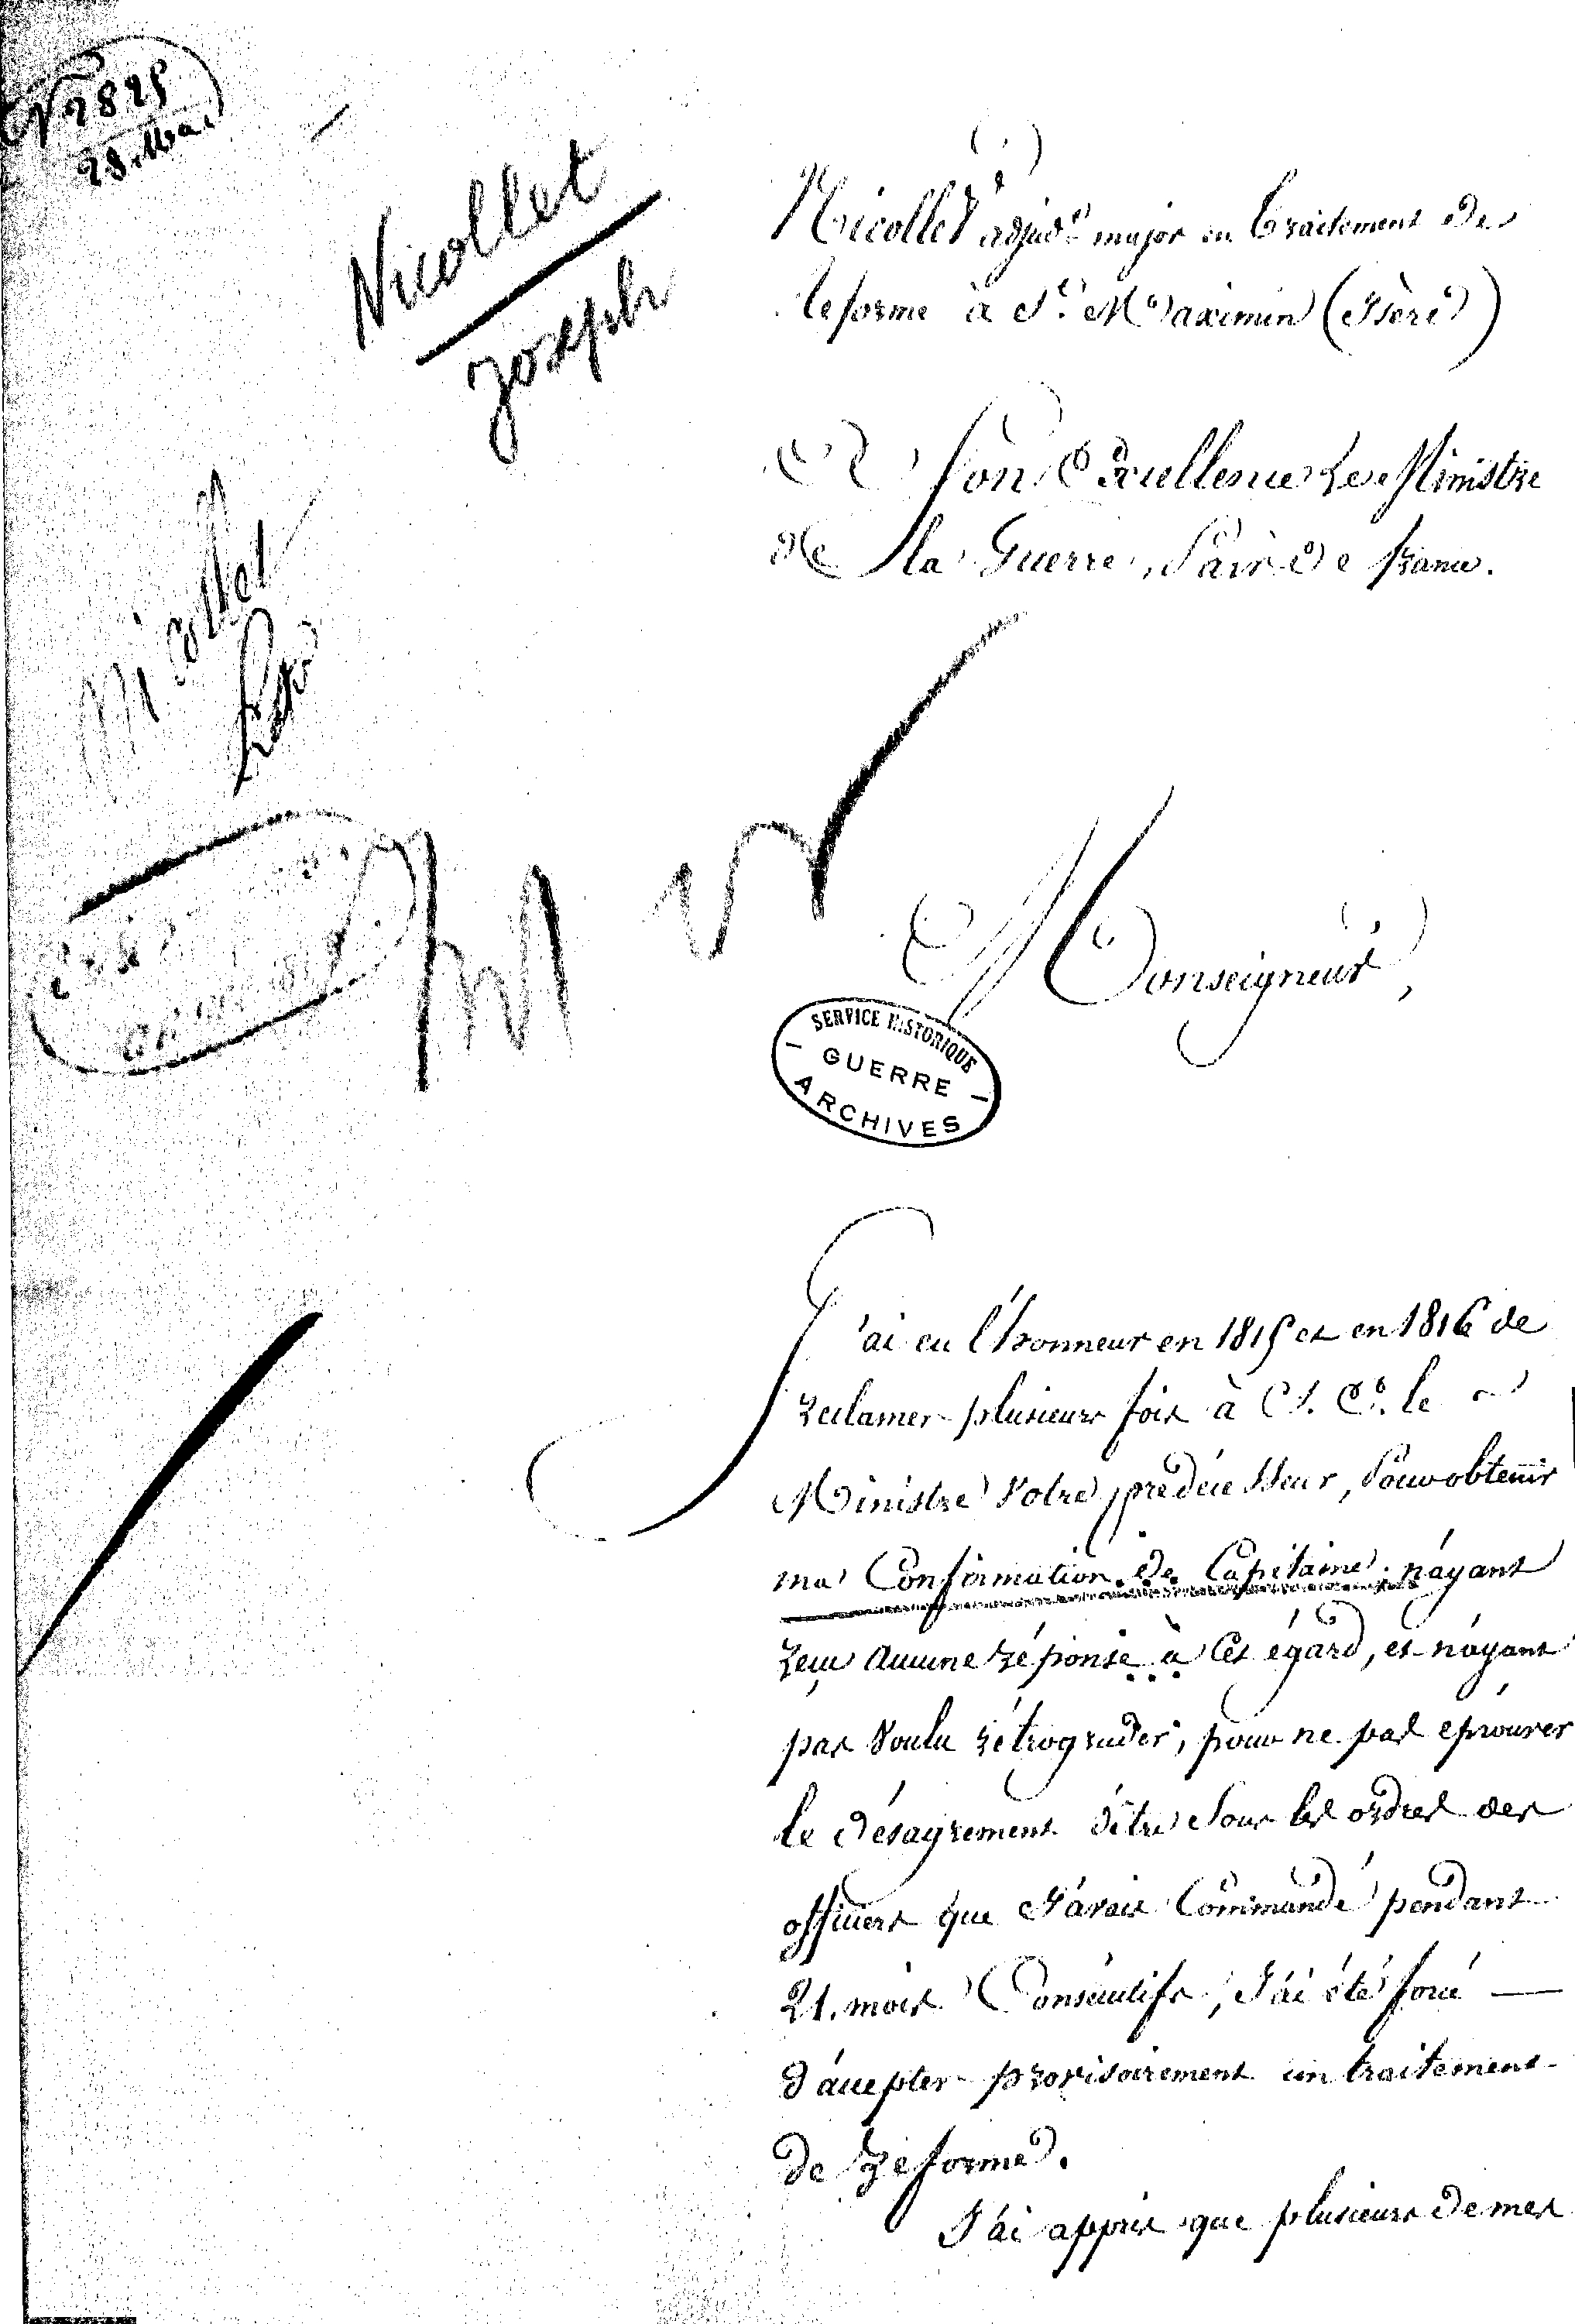 N 2825
28. Mai
Nicollet
Joseph
Nicollet adjud.t major en traitement de
reforme à S.t Maximin (Isère)
A Son Excellence Le Ministre
de la Guerre, Pair de france.
Monseigneur,
SERVICE HISTORIQUE
GUERRE
ARCHIVES
J'ai eu l'honneur en 1815 et en 1816 de
reclamer plusieurs fois à S. E. le
Ministre Votre prédécesseur, Pour obtenir
ma Confirmation de Capitaine. n'ayant
reçu aucune réponse à cet égard, et n'ayant
pas voulu rétrograder, pour ne pas eprouver
le désagrement d'être sous les ordres des
officiers que J'avais Commandé pendant
21. mois Consécutifs, J'ai été forcé —
d'accepter provisoirement un traitement
de reforme.
J'ai appris que plusieurs de mes